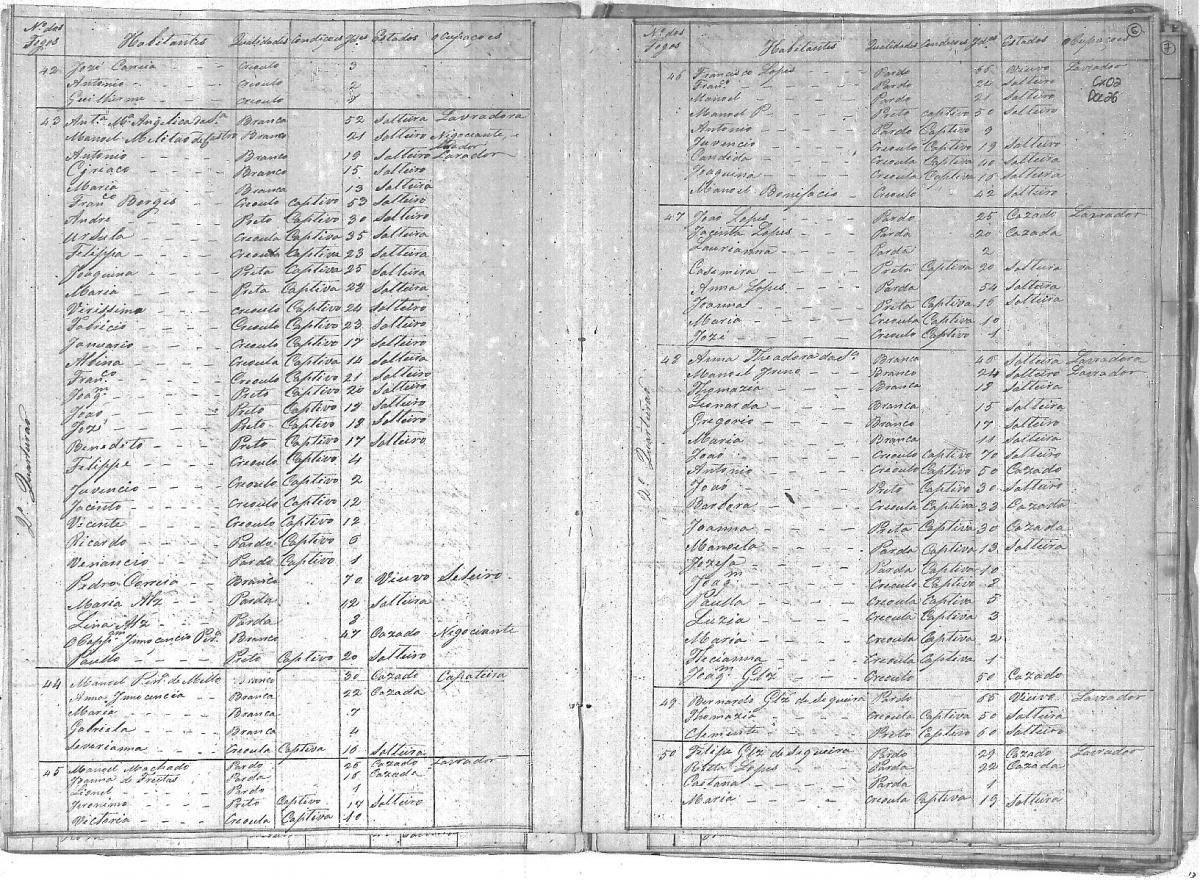 Nº dos Fogos Habitantes Qualidades Condiçoes Ides Estados Ocupaçoes
42 José Correia Creoulo 3
Antonio Creoulo 2
Guilherme Creoulo
43 Antª Mª Angelica da Sª Branca 52 Solteira Lavradora
Manoel Melitao de Castro Branco 21 Solteiro Negociante
Antonio Branco 19 Solteiro Lavrador
Ciriaco Branco 15 Solteiro
Maria Branca 13 Solteira
Franco Borges Creoulo Captivo 53 Solteiro
Andre Preto Captivo 30 Solteiro
Ursula Creoula Captiva 35 Solteira
Felippa Creoula Captiva 23 Solteira
Joaquina Preta Captiva 25 Solteira
Maria Preta Captiva 28 Solteira
Virissimo Creoulo Captivo 24 Solteiro
Fabricio Creoulo Captivo 23 Solteiro
Januario Creoulo Captivo 17 Solteiro
Albina Creoula Captiva 14 Solteira
Franco Creoulo Captivo 21 Solteiro
Joaqm Preto Captivo 20 Solteiro
Joao Preto Captivo 18 Solteiro
José Preto Captivo 18 Solteiro
Benedito Preto Captivo 17 Solteiro
Felippe Creoulo Captivo 4
Juvencio Creoulo Captivo 2
Jacinto Creoulo Captivo 12
Vicente Creoulo Captivo 12
Ricardo Pardo Captivo 6
Venancio Pardo Captivo 1
Pedro Correia Branco 70 Viuvo Seleiro
Maria Alz Parda 42 Solteira
Lina Alz Parda 8
Innocencio Perª Branco 47 Cazado Negociante
Paullo Preto Captivo 20 Solteiro
44 Manoel Perª de Mello Branco 30 Cazado
Anna Innocencia Branca 22 Cazada
Maria Branca 7
Gabriela Branca 4
Severianna Creoula Captiva 16 Solteira
45 Manoel Machado Pardo 26 Cazado Lavrador
Joanna de Freitas Parda 16 Cazada
Lionel Pardo 1
Jeronimo Preto Captivo 14 Solteiro
Victoria Creoula Captiva 40
2º Quarteirao
Nº dos Fogos Habitantes Qualidades Condiçoes Ides Estados Ocupaçoes
6
7
Cx02
Doc26
46 Francisco Lopes Pardo 56 Viuvo Lavrador
Franco Pardo 22 Solteiro
Manoel Pardo 21 Solteiro
Manoel P. Preto Captivo 50 Solteiro
Antonio Pardo Captivo 9
Juvencio Creoulo Captivo 19 Solteiro
Candida Creoula Captiva 40 Solteira
Joaquina Creoula Captiva 16 Solteira
Manoel Bonifacio Creoulo 42 Solteiro
47 Joao Lopes Pardo 25 Cazado Lavrador
Jacinta Lopes Parda 20 Cazada
Laurianna Parda 2
Casemira Preta Captiva 20 Solteira
Anna Lopes Parda 54 Solteira
Joanna Preta Captiva 16 Solteira
Maria Creoula Captiva 10
José Creoulo Captivo 1
48 Anna Theadora da Sª Branca 46 Solteira Lavradora
Manoel Branco 24 Solteiro Lavrador
Thomazia Branca 18 Solteira
Lionarda Branca 15 Solteira
Gregorio Branco 17 Solteiro
Maria Branca 11 Solteira
Joao Creoulo Captivo 70 Solteiro
Antonio Creoulo Captivo 50 Cazado
Joao Preto Captivo 30 Solteiro
Barbora Creoula Captiva 33 Cazada
Joanna Preta Captiva 30 Cazada
Marcela Parda Captiva 13 Solteira
Jozefa Parda Captiva 10
Joaqm Creoulo Captivo 2
Paulla Creoula Captiva 5
Luzia Creoula Captiva 3
Maria Creoula Captiva 2
Creoula Captiva 1
Joaqm Glz Creoulo 50 Cazado
49 Bernardo Glz de Sequeira Pardo 65 Viuvo Lavrador
Thomazia Creoula Captiva 50 Solteira
Clemente Preto Captivo 60 Solteiro
50 Felipe Glz de Sequeira Pardo 29 Cazado Lavrador
Lopes Parda 22 Cazada
Caetana Parda 1
Maria Creoula Captiva 19 Solteira
2º Quarteirao